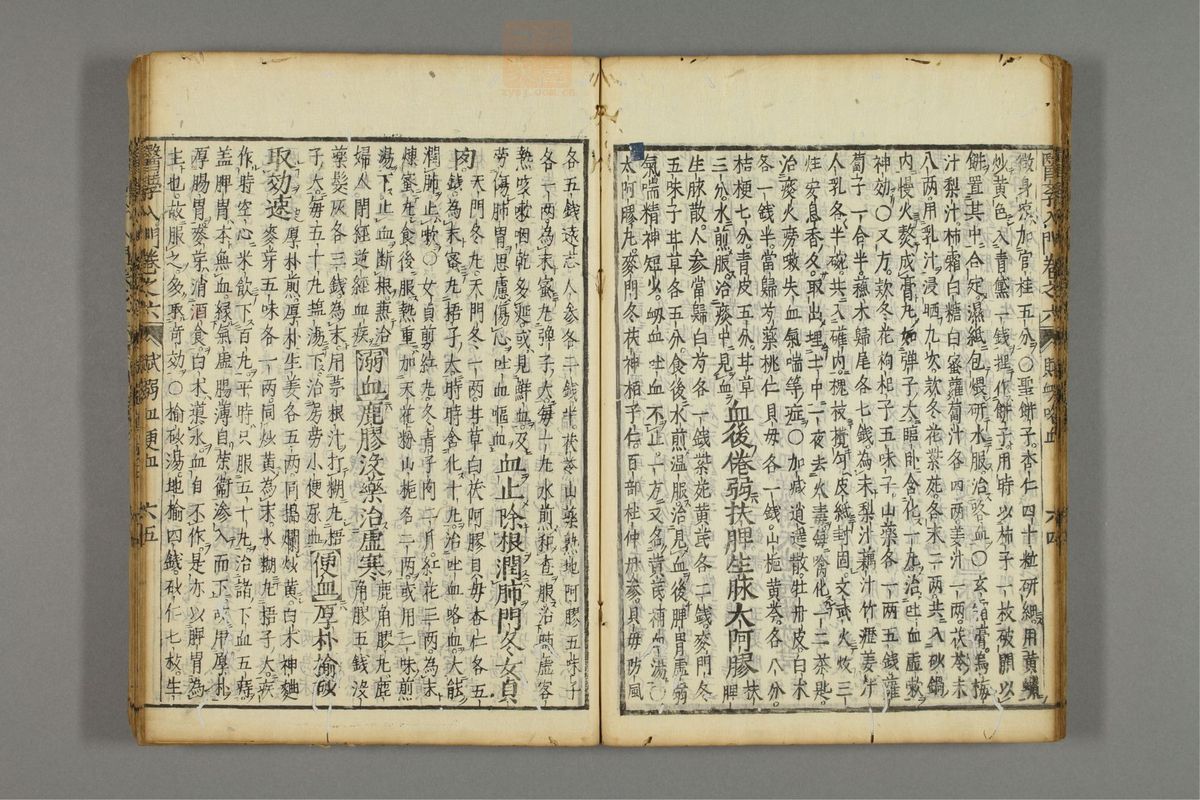 微身涼加官桂五分○聖餅子杏仁四十粒研細用黃蠟
炒黃色入青黛一錢捏作餅子用時以柿子一枚破開以
餅置其中合定濕紙包煨研水服治咯血○玄霜膏烏梅
汁梨汁柿霜白糖白蜜蘿蔔汁各四兩姜汁一兩茯苓末
八兩用乳汁浸晒九次款冬花紫菀各末二兩共入砂鍋
內慢火熬成膏丸如彈子大臨臥含化一丸治吐血虛嗽
神効○又方款冬花枸杞子五味子山藥各一兩五錢蘿
蔔子一合半蘇木歸尾各七錢為末梨汁藕汁竹瀝姜汁
人乳各半碗共入確內槐枝攪勻皮紙封固文武火炆三
炷官息香久取出埋土中一夜去火毒每噙化一二茶匙
治痰火旁嗽失血氣喘等症○加減逍遙散牡丹皮白朮
各一錢半當歸芍藥桃仁貝毋各一錢山梔黃芩各八分
桔梗七分青皮五分甘草
三分水煎服治痰中見血
血後倦弱扶脾生脉大阿膠
扶脾
生脉散人參當歸白芍各一錢紫菀黃芪各二錢麥門冬
五味子甘草各五分食後水煎温服治見血後脾胃虛弱
氣喘精神短少衂血吐血不止一方又名黃芪補血湯○
太阿膠丸麥門冬茯神柏子仁百部杜仲丹參貝毋防風
醫學入門卷之六 六四
各五錢遠志人參各二錢半茯苓山藥熟地阿膠五味子
各一兩為末蜜丸彈子大每一丸水煎和查服治肺虛客
熱咳嗽咽乾多涎或見鮮血及
勞傷肺胃思慮傷心吐血嘔血
血止除根潤肺門冬女貞
肉
天門冬丸天門冬一兩甘草白茯阿膠貝毋杏仁各五
錢為末蜜丸梧子大時時含化十丸治吐血咯血大能
潤肺止嗽○女貞剪紅丸冬青子肉二斤紅花三兩為末
煉蜜丸食後服熱重加天花粉山梔各二兩或用二味煎
湯下止血斷根熱治
婦人閉經逆經血疾
溺血鹿膠沒藥治虛寒
鹿角膠丸鹿
角膠五錢沒
藥髮灰各三錢為末用茅根汁打糊丸梧
子大每五十丸鹽湯下治房勞小便尿血
便血厚朴榆砂
取効速
厚朴煎厚朴生姜各五兩同搗爛炒黃白朮神麯
麥芽五味各一兩同炒黃為末水糊丸梧子大疾
作時空心米飲下百丸平時只服五十丸治諸下血五臟
盖血胃本無血緣氣虛腸薄自榮衛滲入而下攻用厚朴
厚腸胃麥芽消酒食白朮導水血自不作是亦以脾胃為
主也故服之多取奇効○榆砂湯地榆四錢砂仁七枚生
醫學入門卷之六 賦溺血便血 六五